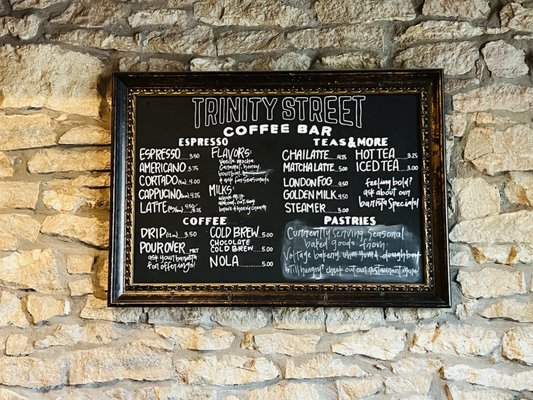 TRINITY STREET
COFFEE BAR
ESPRESSO
ESPRESSO 3.50
AMERICANO 3.50
CORTADO 4.00
CAPPUCINO
LATTE
FLAVORS:
vanilla mocha
caramel, honey
bourbon
& ask for seasonal
MILKS:
TEAS & MORE
CHAI LATTE 4.25
MATCHA LATTE 5.00
LONDON FOG 4.50
GOLDEN MILK 4.50
STEAMER 3.50
HOT TEA 3.25
ICED TEA 3.00
feeling bold?
ask about our
barista specials!
COFFEE
DRIP
POUR OVER MKT
ask your barista
for offerings!
COLD BREW 5.00
CHOCOLATE
COLD BREW 5.00
NOLA 5.00
PASTRIES
Currently serving seasonal
baked goods from:
still hungry? check out our restaurant